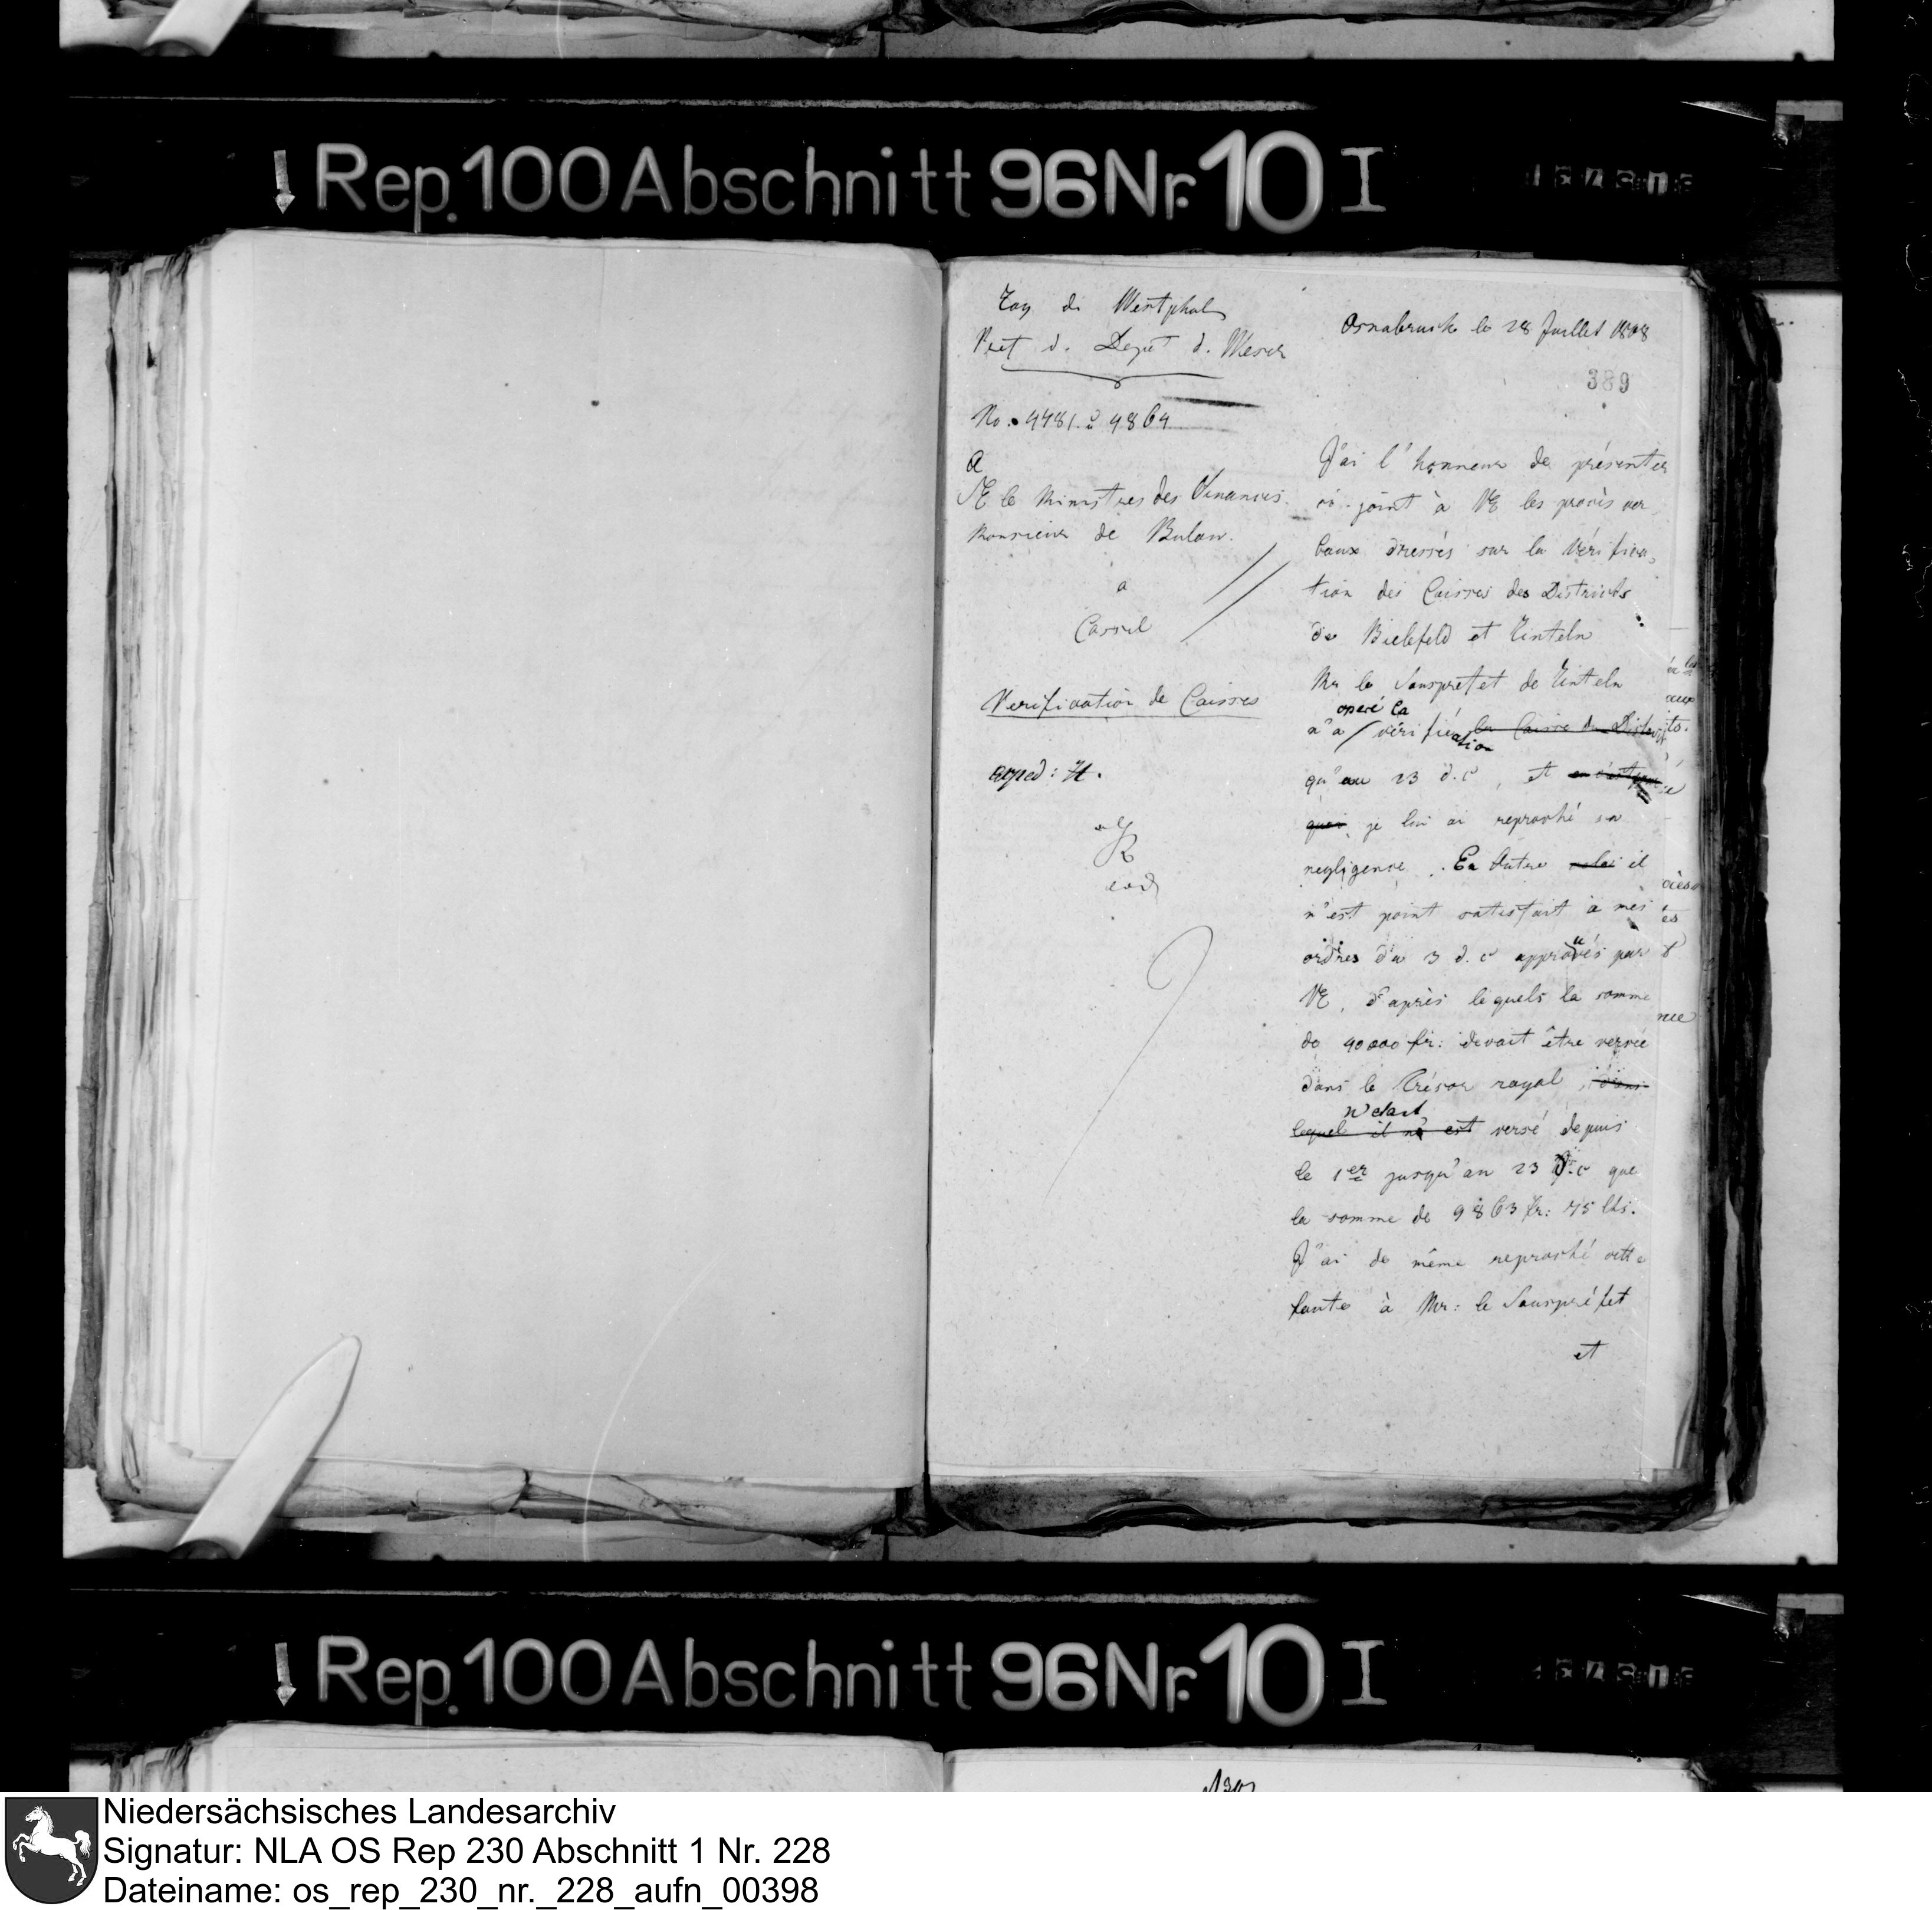 Rep. 100 Abschnitt 96 Nr. 10 I
Roy de Westphal
Pref d. Depêt d. Weser
Osnabruck le 28 Juillet 1808
389
No. 4481. u 4864
A
SE le Ministres des Finances
Monsieur de Bulow.
a
Cassel
Verification de Caisses
exped: H.
eod
J'ai l'honneur de présenter
ci-joint à VE les procès ver,
baux dressés sur la Vérifica,
tion des Caisses des Districts
de Bielefeld et Rinteln
Mr le Souspréfet de Rinteln
operé la
n'a / vérification la Caisse du District
qu'au 23 d.c, et
quoi, je lui ai reproché sa
negligence. En Outre cela il
n'est point satisfait à mes
ordres du 3 d.c approuvés par
VE, d'après lequels la somme
de 40000 fr: devait être versée
dans le Trésor royal, dans
n'etant
lequel il n'a est versé depuis
le 1er jusqu'au 23 d.c que
la somme de 9863 fr: 75 Cts.
J'ai de même reproché cette
faute à Mr: le Souspréfet
et
Rep. 100 Abschnitt 96 Nr. 10 I
Niedersächsisches Landesarchiv
Signatur: NLA OS Rep 230 Abschnitt 1 Nr. 228
Dateiname: os_rep_230_nr._228_aufn_00398